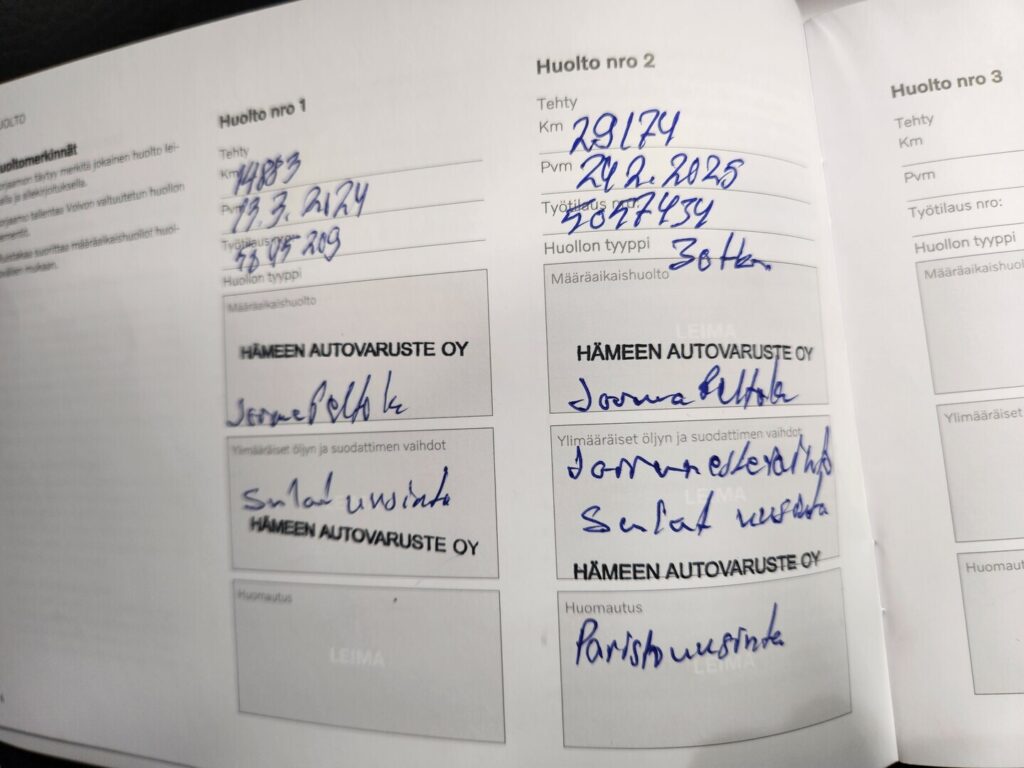 HUOLTO
Huoltomerkinnät
täytyy merkitä jokainen huolto
ja allekirjoituksella.
tallentaa Volvon valtuutetun huollon
suorittaa määräaikaishuollot
mukaan.
Huolto nro 1
Tehty
Km 14853
Pvm 13.3.2024
Työtilaus nro:
Huollon tyyppi
Määräaikaishuolto
HÄMEEN AUTOVARUSTE OY
Jorma Peltola
Ylimääräiset öljyn ja suodattimen vaihdot
Sulat uusinta
HÄMEEN AUTOVARUSTE OY
Huomautus
LEIMA
Huolto nro 2
Tehty
Km 29174
Pvm 24.2.2025
Työtilaus nro: 5027434
Huollon tyyppi 30tkm
Määräaikaishuolto
LEIMA
HÄMEEN AUTOVARUSTE OY
Jorma Peltola
Ylimääräiset öljyn ja suodattimen vaihdot
LEIMA
Sulat uusinta
HÄMEEN AUTOVARUSTE OY
Huomautus
Paristo uusinta
LEIMA
Huolto nro 3
Tehty
Km
Pvm
Työtilaus nro:
Huollon tyyppi
Määräaikaishuolto
Ylimääräiset